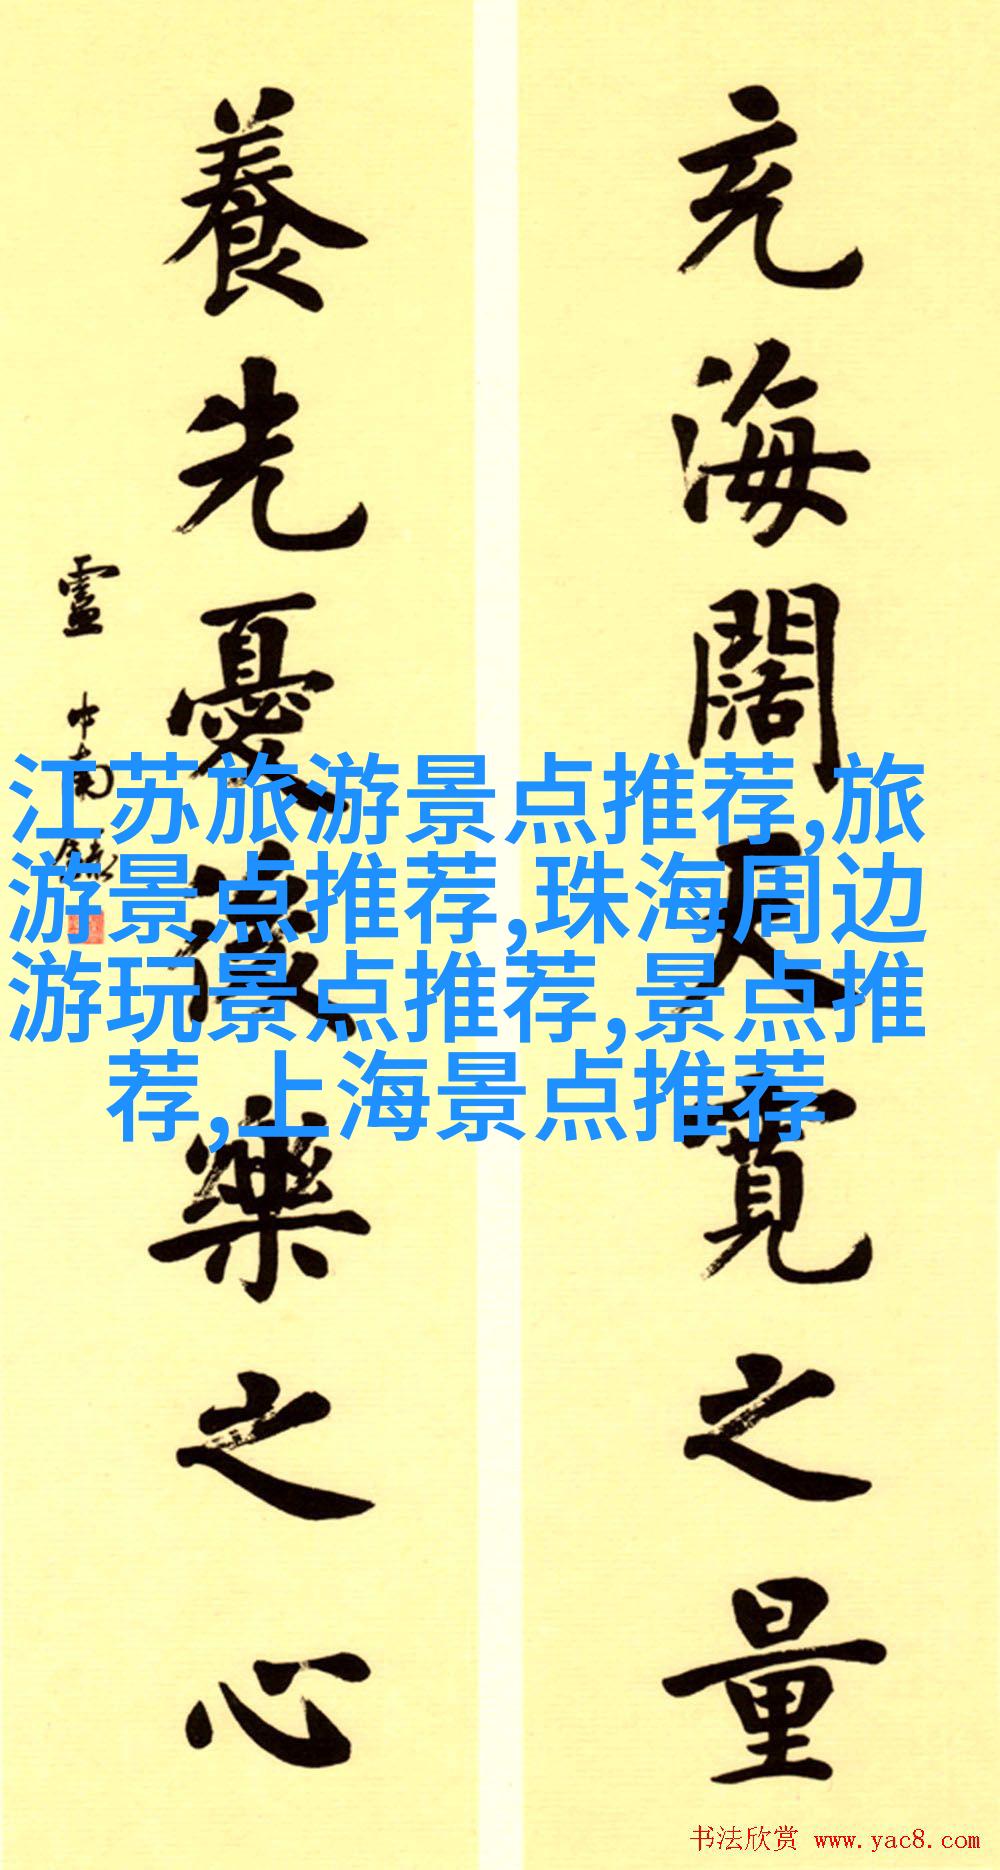 充海闊天寬之量
養先憂後樂之心
靈中南
江苏旅游景点推荐,旅
游景点推荐,珠海周边
游玩景点推荐,景点推
荐,上海景点推荐
书法欣赏 www.yac8.com